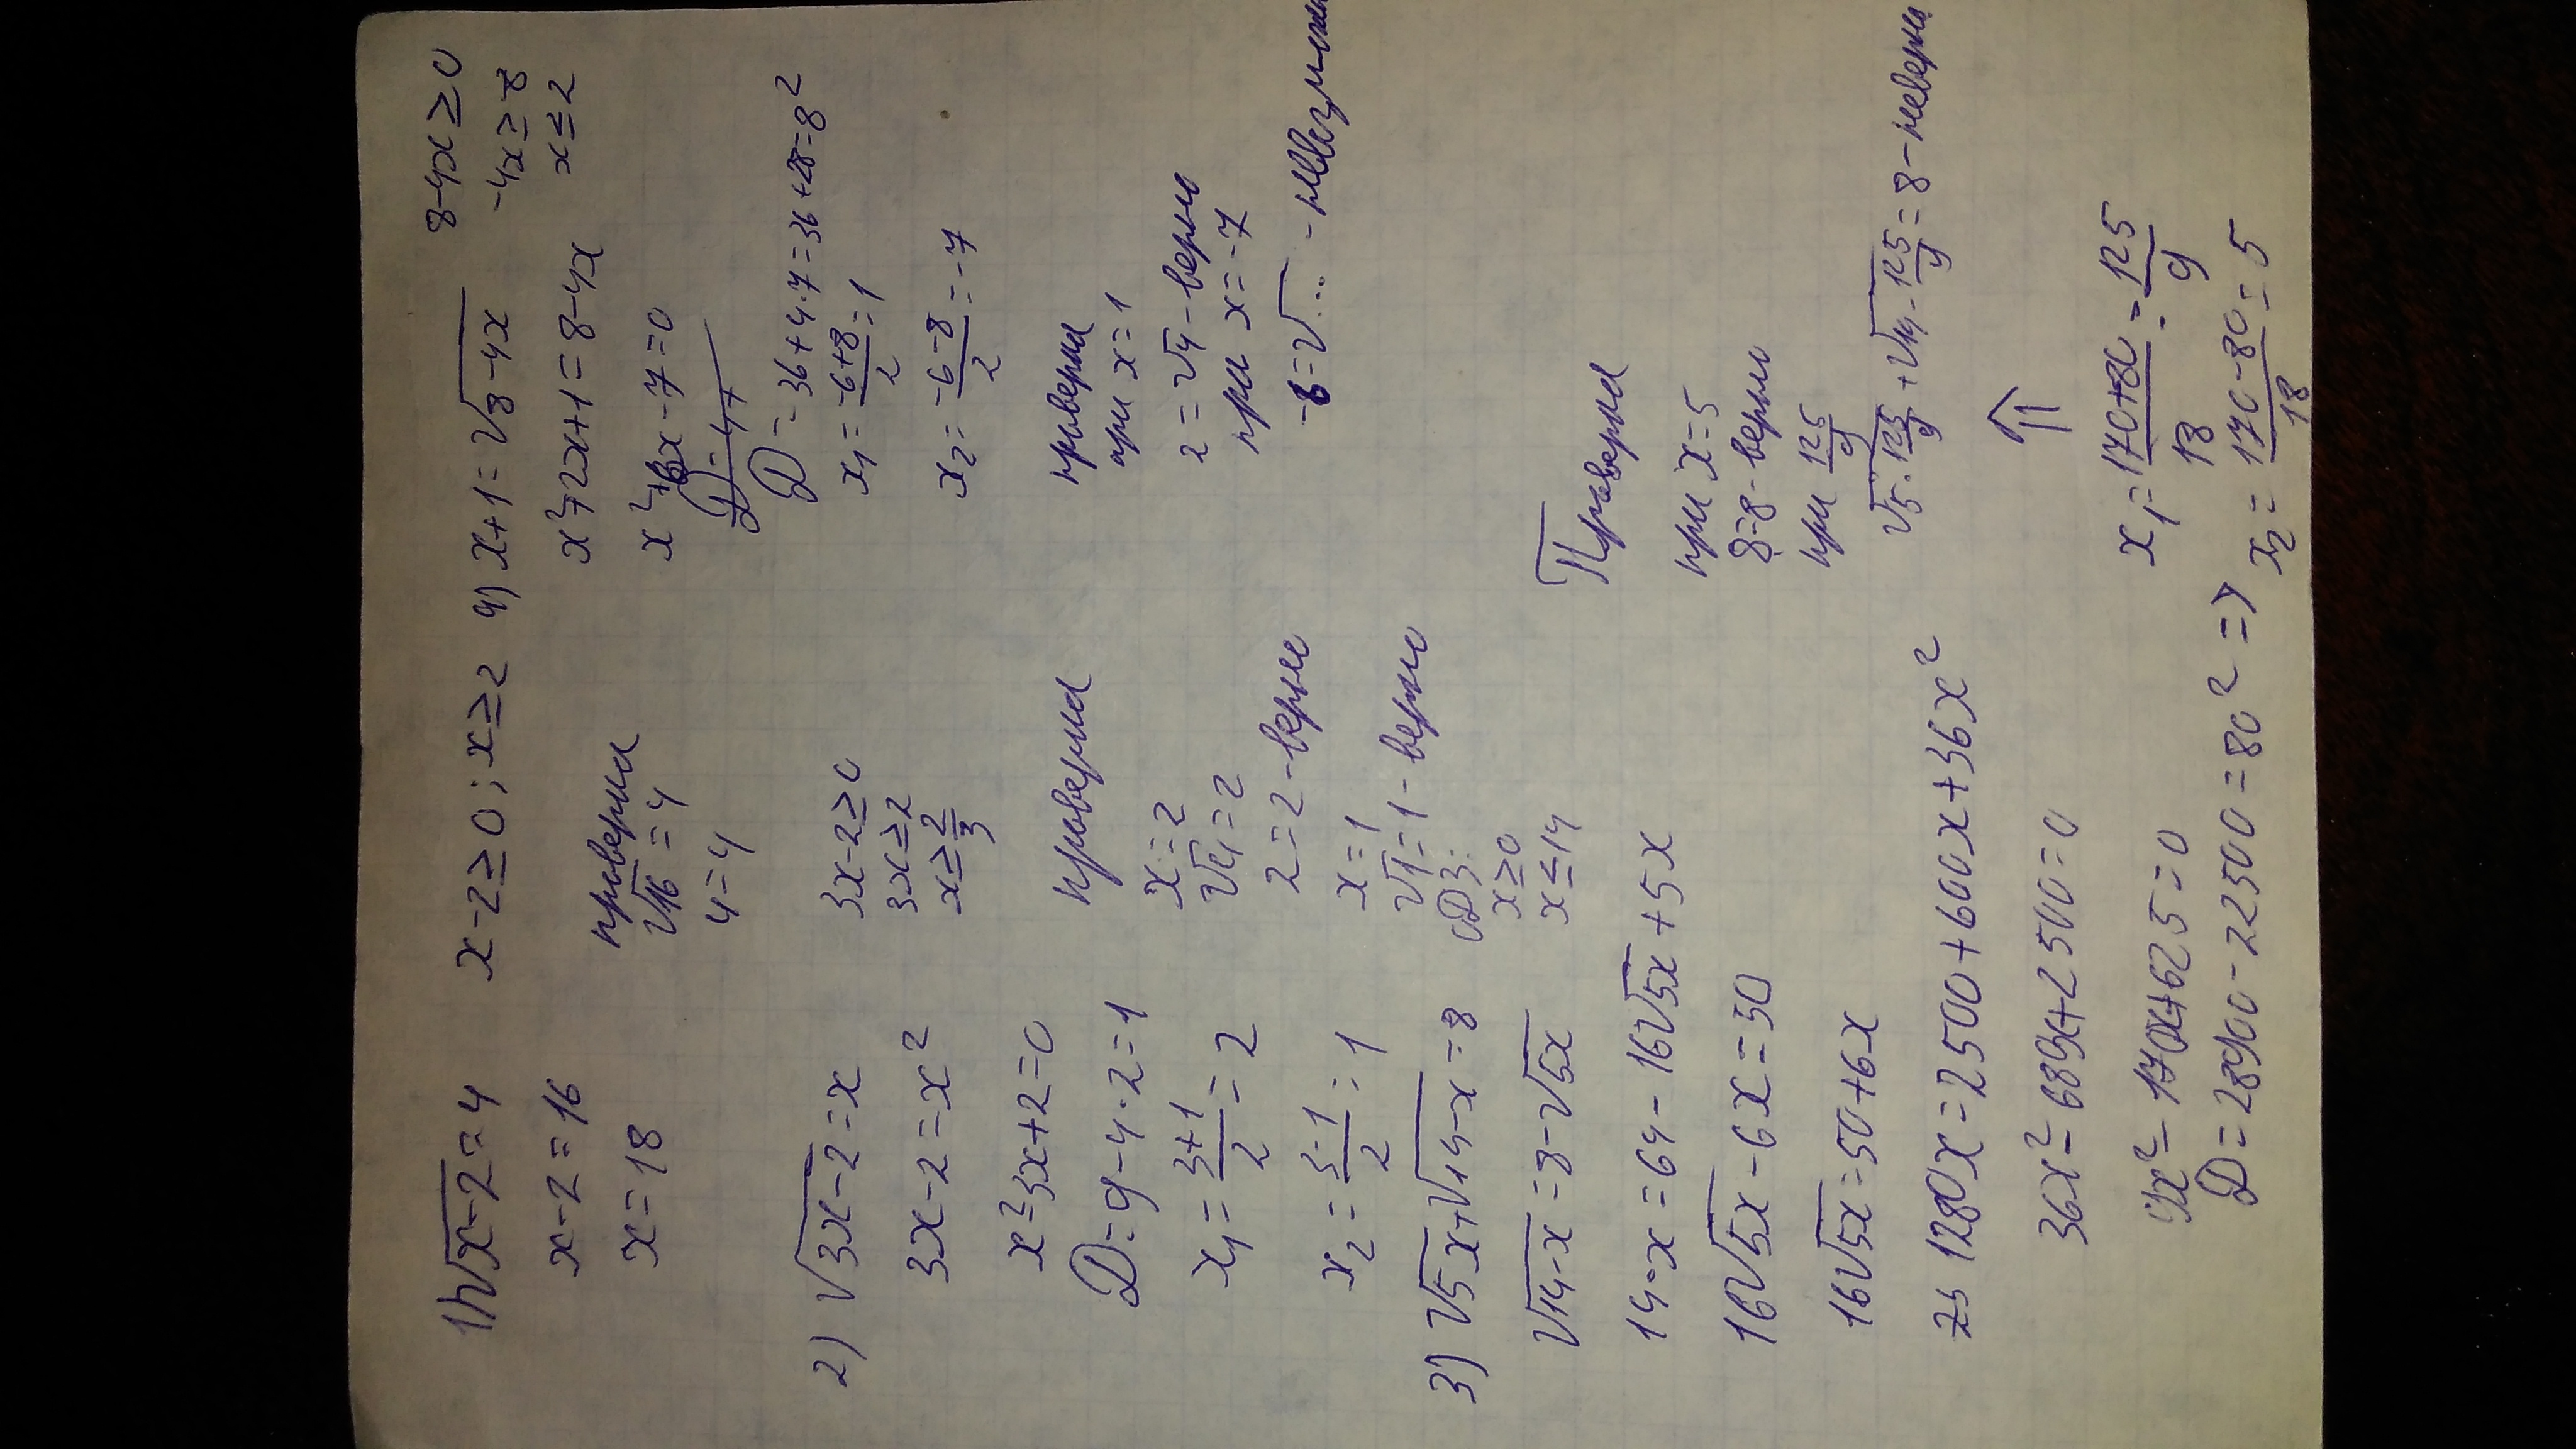 1) √x-2 = 4
x-2 = 16
x = 18
x-2 ≥ 0 ; x ≥ 2
проверка
√16 = 4
4 = 4
2) √3x-2 = x
3x-2 = x²
x²-3x+2 = 0
D = 9-4·2 = 1
x₁ = (3+1)/2 = 2
x₂ = (3-1)/2 = 1
3x-2 ≥ 0
3x ≥ 2
x ≥ 2/3
проверка
x = 2
√4 = 2
2 = 2 - верно
x = 1
√1 = 1 - верно
3) √5x + √14-x = 8
√14-x = 8-√5x
14-x = 64-16√5x+5x
16√5x-6x = 50
16√5x = 50+6x
1280x = 2500+600x+36x²
36x²-680x+2500 = 0
9x²-170x+625 = 0
D = 28900-22500 = 80² =>
ОДЗ:
x ≥ 0
x ≤ 14
x₁ = (170+80)/18 = 125/9
x₂ = (170-80)/18 = 5
⇑
Проверка
при x = 5
8 = 8 - верно
при 125/9
√5·125/9 + √14-125/9 = 8 - неверно
4) x+1 = √8-4x
x²+2x+1 = 8-4x
x²+6x-7 = 0
D = 36+4·7 = 36+28 = 8²
x₁ = (-6+8)/2 = 1
x₂ = (-6-8)/2 = -7
8-4x ≥ 0
-4x ≥ -8
x ≤ 2
проверка
при x = 1
2 = √4 - верно
при x = -7
-6 = √...